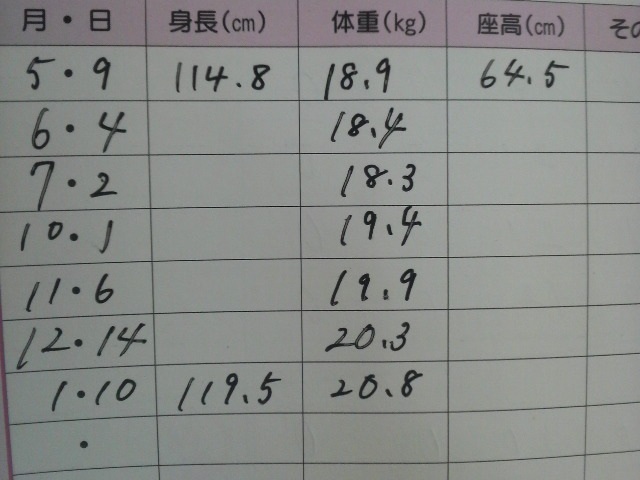 月・日 身長(cm) 体重(kg) 座高(cm) その
5・9 114.8 18.9 64.5
6・4 18.4
7・2 18.3
10・1 19.4
11・6 19.9
12・14 20.3
1・10 119.5 20.8
・